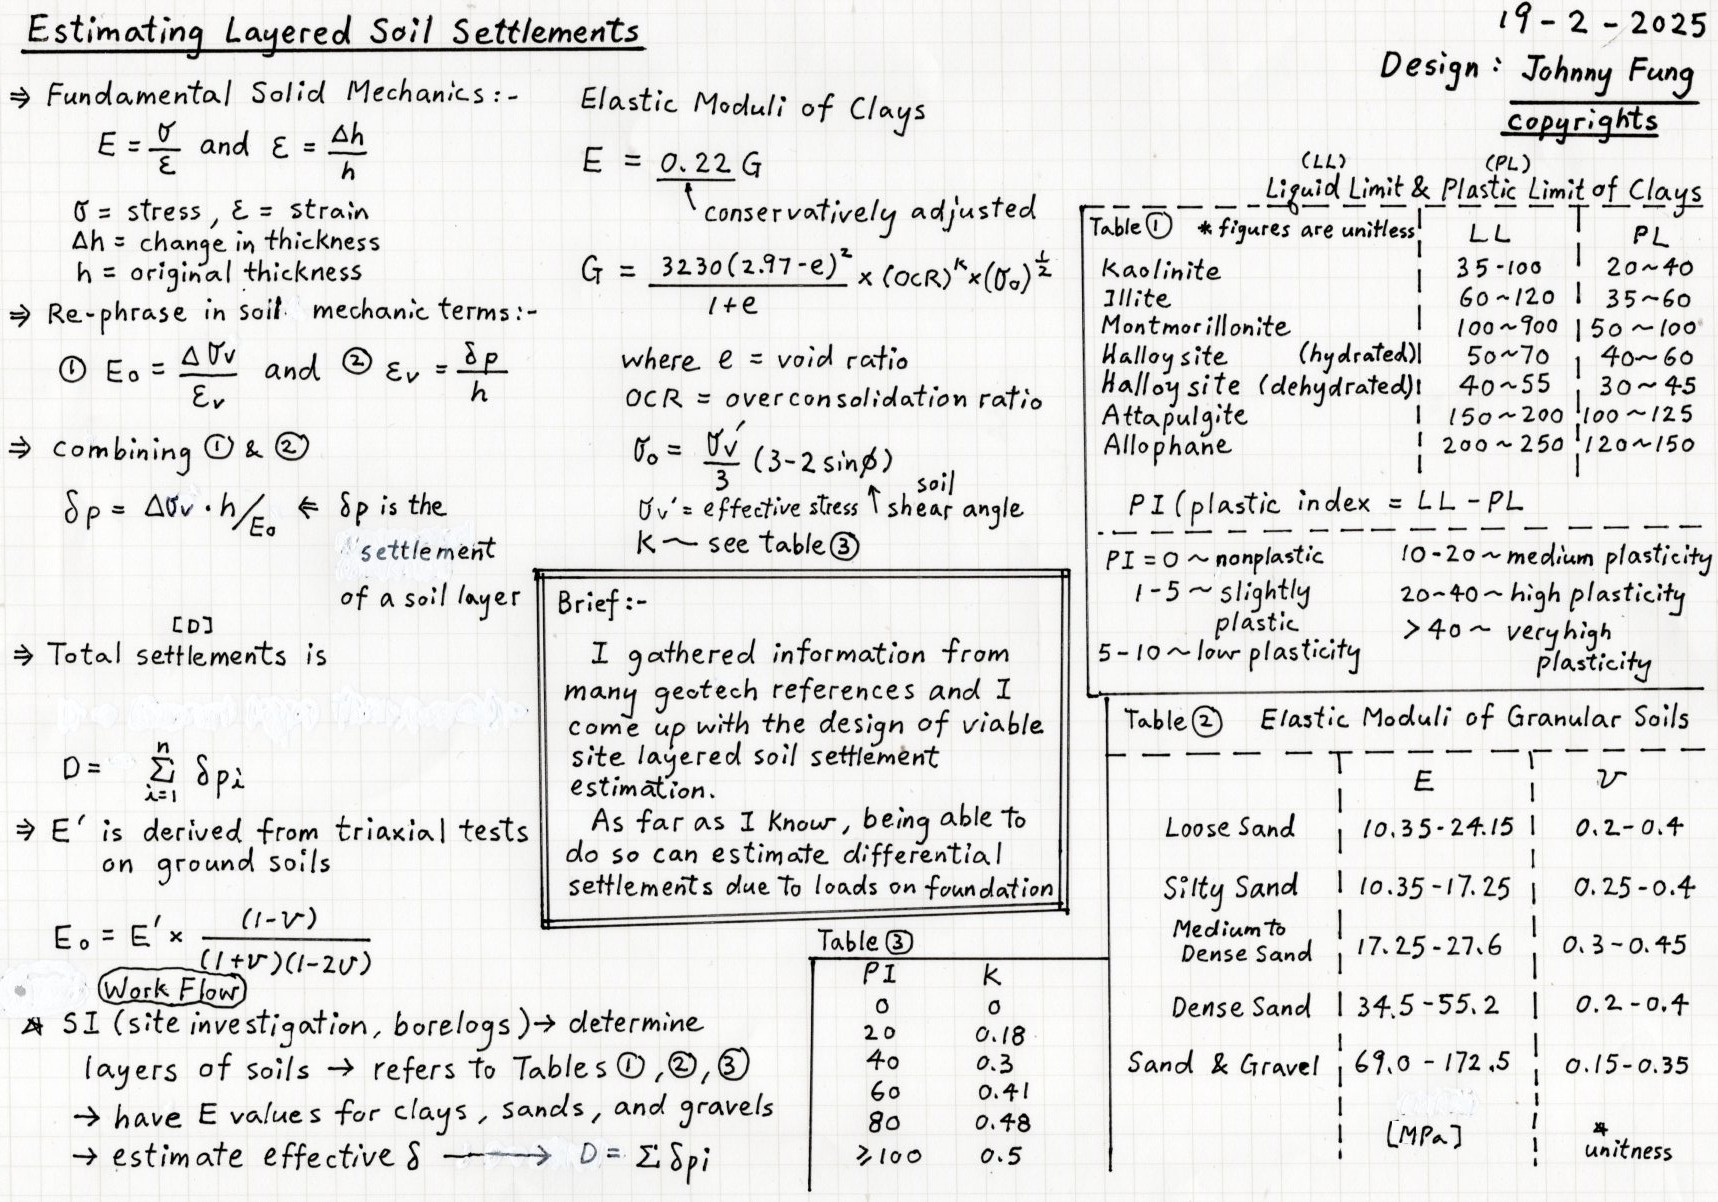 Estimating Layered Soil Settlements
19-2-2025
Design: Johnny Fung
copyrights
⇒ Fundamental Solid Mechanics:-
E = σ/ε and ε = Δh/h
σ = stress, ε = strain
Δh = change in thickness
h = original thickness
⇒ Re-phrase in soil mechanic terms:-
① Eo = Δσv/εv and ② εv = δp/h
⇒ combining ① & ②
δp = Δσv · h/Eo ⇐ δp is the
settlement
of a soil layer
[D]
⇒ Total settlements is
D = Σ δpi
n
i=1
⇒ E' is derived from triaxial tests
on ground soils
Eo = E' × (1-ν)/(1+ν)(1-2ν)
Work Flow
* SI (site investigation, borelogs) → determine
layers of soils → refers to Tables ①, ②, ③
→ have E values for clays, sands, and gravels
→ estimate effective δ → D = Σ δpi
Elastic Moduli of Clays
E = 0.22 G
conservatively adjusted
G = 3230(2.97-e)²/1+e × (OCR)ᴷ × (σo)^½
where e = void ratio
OCR = overconsolidation ratio
σo = σv'/3 (3-2 sinϕ)
soil
σv' = effective stress ↑ shear angle
K ~ see table ③
Brief:-
I gathered information from
many geotech references and I
come up with the design of viable
site layered soil settlement
estimation.
As far as I know, being able to
do so can estimate differential
settlements due to loads on foundation
Table ③
PI K
0 0
20 0.18
40 0.3
60 0.41
80 0.48
≥100 0.5
(LL) (PL)
Liquid Limit & Plastic Limit of Clays
Table ① * figures are unitless LL PL
Kaolinite 35-100 20~40
Illite 60~120 35~60
Montmorillonite 100~900 50~100
Halloysite (hydrated) 50~70 40~60
Halloysite (dehydrated) 40~55 30~45
Attapulgite 150~200 100~125
Allophane 200~250 120~150
PI (plastic index = LL-PL
PI = 0 ~ nonplastic
1-5 ~ slightly
plastic
5-10 ~ low plasticity
10-20 ~ medium plasticity
20~40 ~ high plasticity
>40 ~ very high
plasticity
Table ② Elastic Moduli of Granular Soils
E ν
Loose Sand 10.35-24.15 0.2-0.4
Silty Sand 10.35-17.25 0.25-0.4
Medium to
Dense Sand 17.25-27.6 0.3-0.45
Dense Sand 34.5-55.2 0.2-0.4
Sand & Gravel 69.0-172.5 0.15-0.35
[MPa] *
unitness